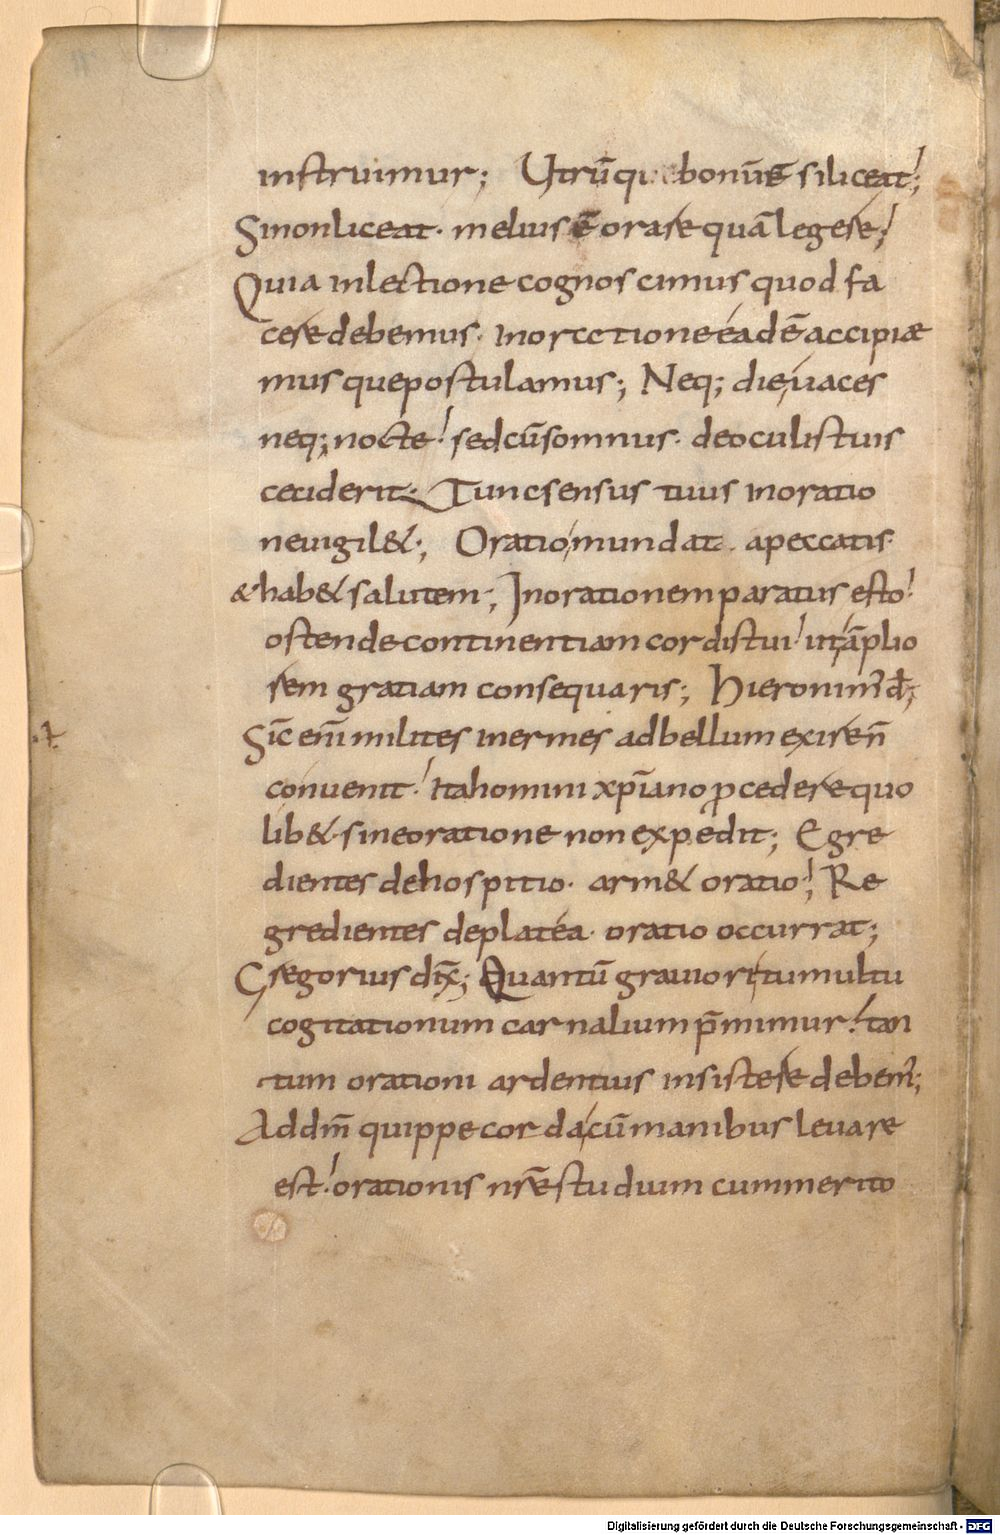 instruimur; Utrūque bonū ē si liceat;
Si non liceat. melius ē orare quā legere;
Quia in lectione cognoscimus quod fa
cere debemus. in orctione eadē accipiæ
mus que postulamus; Neq; die, uaces
neq; nocte! sed cū somnus. de oculis tuis
ceciderit. Tunc sensus tuus in oratio
ne uigil&; Oratio mundat a peccatis.
& hab& salutem; In orationem paratus esto!
ostende continentiam cordis tui! ut āplio
rem gratiam consequaris; Hieronim' d̄;
Sic̄ eni̅ milites inermes ad bellum exire n̄
conuenit! Ita homini xp̄iano ꝓcedere quo
lib& sine oratione non expedit; Egre
dientes de hospitio. arm& oratio; Re
gredientes de platea. oratio occurrat;
Gregorius dix̄; Quantū grauiori tumultu
cogitationum carnalium p̄mimur! tan
tum orationi ardentius insistere debem';
Ad dm̄ quippe corda cū manibus leuare
est! orationis nr̄e studium cum merito
Digitalisierung gefördert durch die Deutsche Forschungsgemeinschaft - DFG